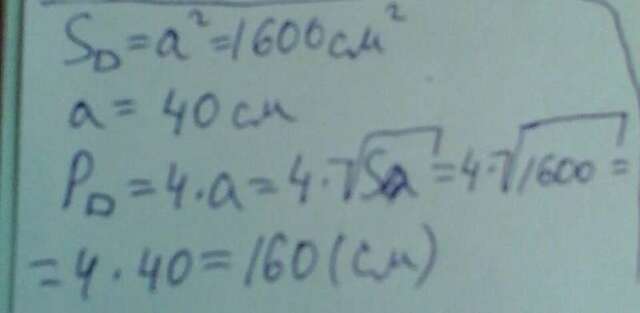 S□ = a² = 1600 см²
a = 40 см
P□ = 4 · a = 4 · √Sа = 4 · √1600 =
= 4 · 40 = 160 (см)